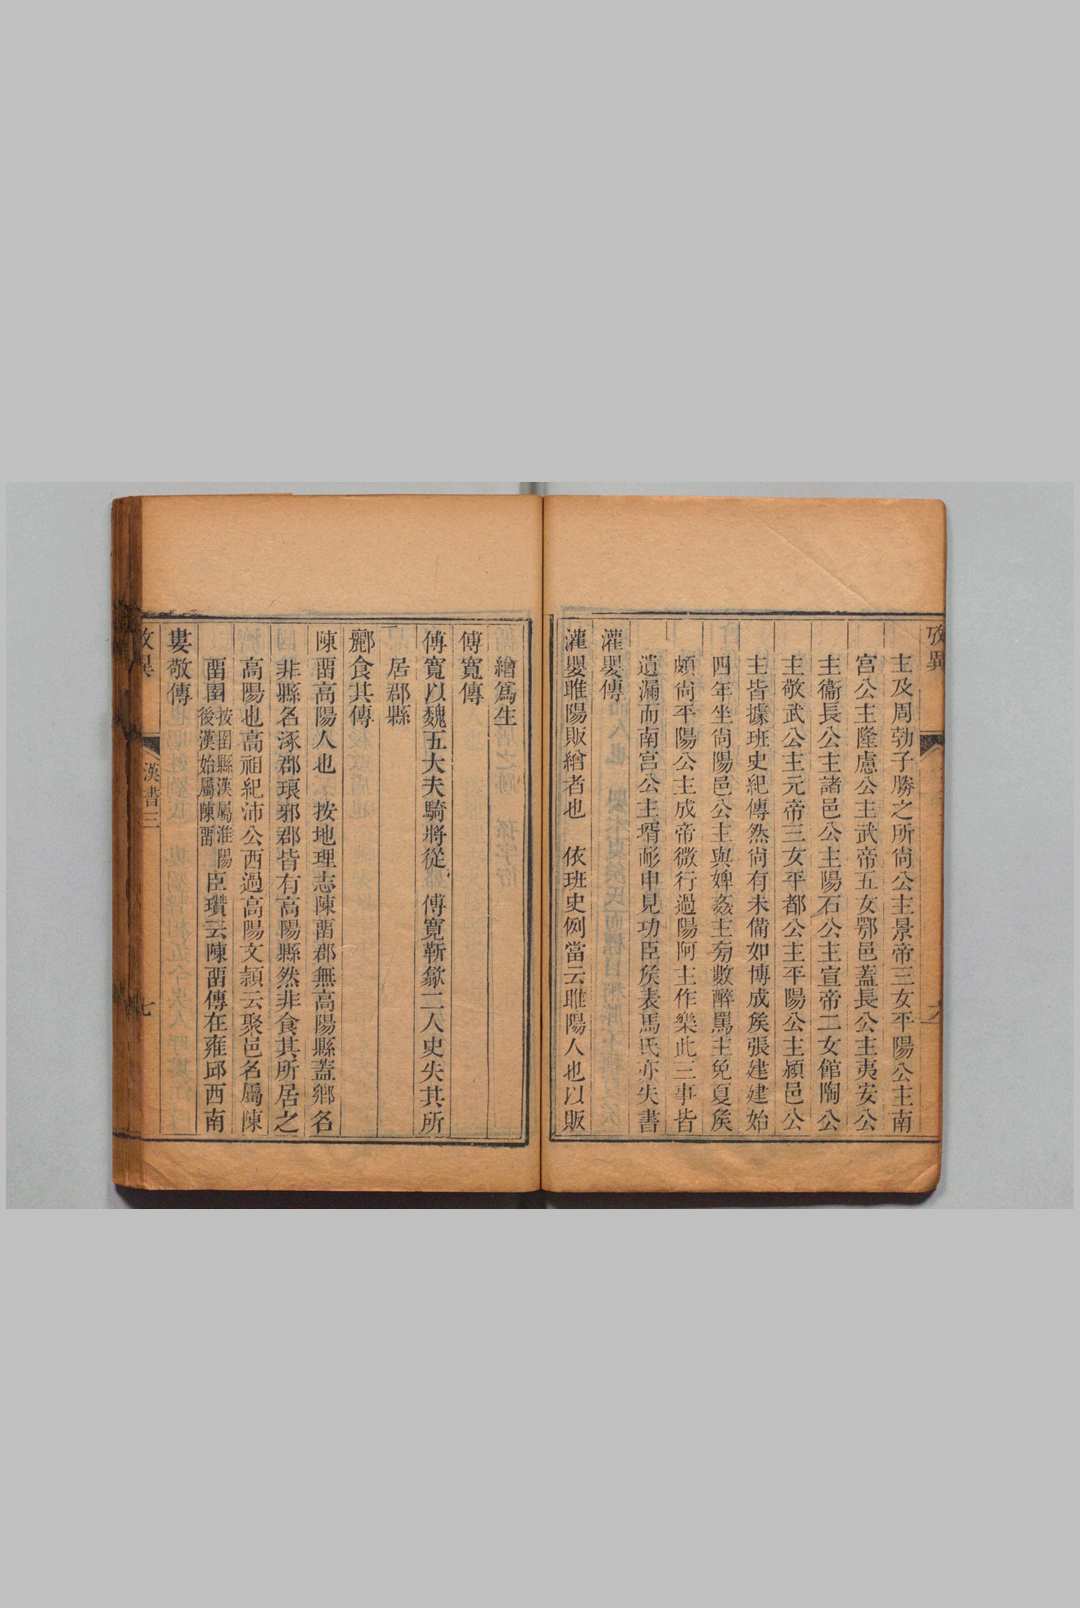 攷異
主及周勃子勝之所尚公主景帝三女平陽公主南
宮公主隆慮公主武帝五女鄂邑蓋長公主夷安公
主衞長公主諸邑公主陽石公主宣帝二女館陶公
主敬武公主元帝三女平都公主平陽公主潁邑公
主皆據班史紀傳然尚有未備如博成矦張建建始
四年坐尚陽邑公主與婢姦主旁數醉罵主免夏矦
頗尚平陽公主成帝微行過陽阿主作樂此三事皆
遺漏而南宮公主壻耏申見功臣矦表馬氏亦失書
灌嬰傳
灌嬰睢陽販繒者也　依班史例當云睢陽人也以販
繒爲生
傅寬傳
傅寬以魏五大夫騎將從　傅寬靳歙二人史失其所
居郡縣
酈食其傳
陳畱高陽人也　按地理志陳畱郡無高陽縣蓋鄉名
非縣名涿郡琅邪郡皆有高陽縣然非食其所居之
高陽也高祖紀沛公西過高陽文穎云聚邑名屬陳
畱圉按圉縣漢屬淮陽後漢始屬陳畱臣瓚云陳畱傳在雍邱西南
婁敬傳
攷異
漢書三
七